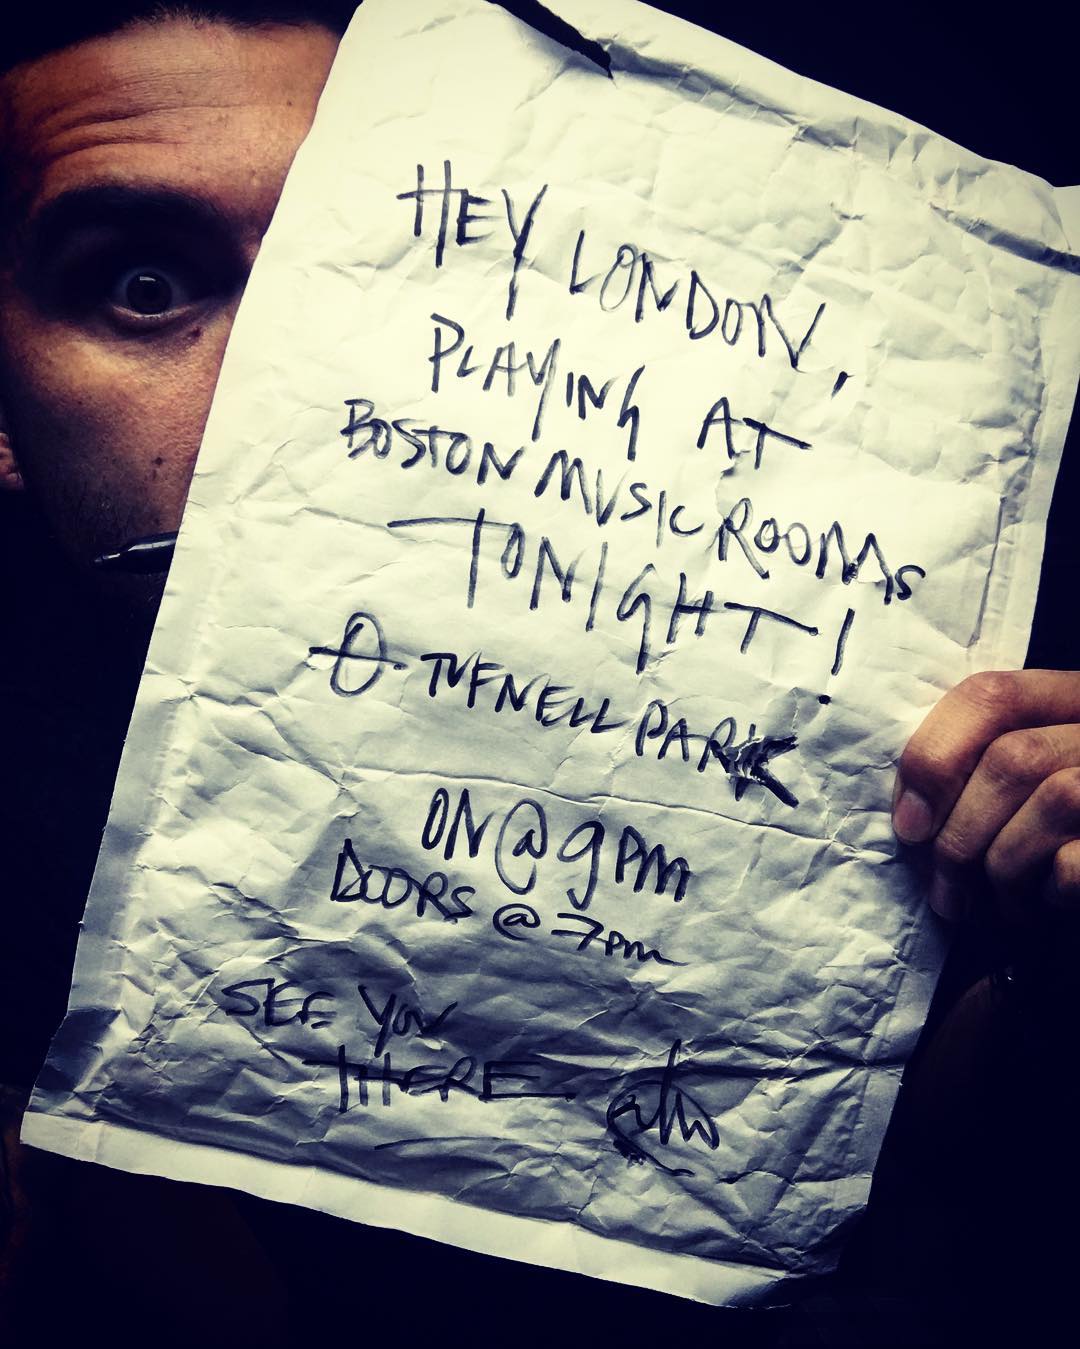 HEY LONDON,
PLAYING AT
BOSTON MUSIC ROOMS
TONIGHT!
TUFNELL PARK
ON @ 9PM
DOORS @ 7PM
SEE YOU
THERE